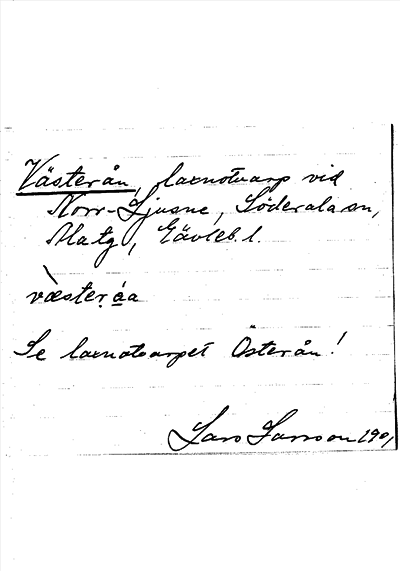 Västerån, laxnotvarp vid
Norr-Ljusne, Söderala sn,
Matg, Gävleb. l.
væster åa
Se laxnotvarpet Österån!
Lars Larsson 1901